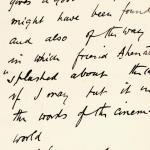 gives a good
might have been found
and also of the way
in which friend
"splashed about the
if I may but it
the words of the cinema
world